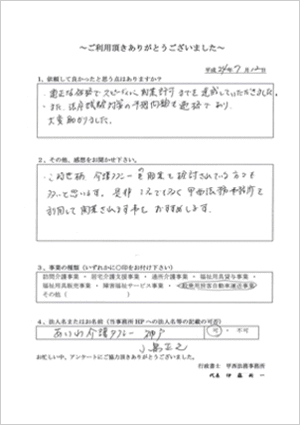 ～ご利用頂きありがとうございました～
平成24年7月12日
1、依頼して良かったと思う点はありますか？
・適正な価格でスピーディに開業許可までを達成していただきました。
・また、法令試験対策の予想問題も適格であり、
大変助かりました。
2、その他、感想をお聞かせ下さい。
・この時世柄、介護タクシーの開業を検討されている方も
多いと思います。是非
利用して開業されます事をおすすめします。
3、事業の種類（いずれかに〇印をお付け下さい）
訪問介護事業・居宅介護支援事業・通所介護事業・福祉用具貸与事業・
福祉用具販売事業・障害福祉サービス事業・一般乗用旅客自動車運送事業
その他（　　　　　）
4、法人名またはお名前（当事務所HPへの法人名等の記載の可否）
介護タクシー 神戸
可・不可
お忙しい中、アンケートにご協力頂きありがとうございました。
行政書士　甲西法務事務所
代表